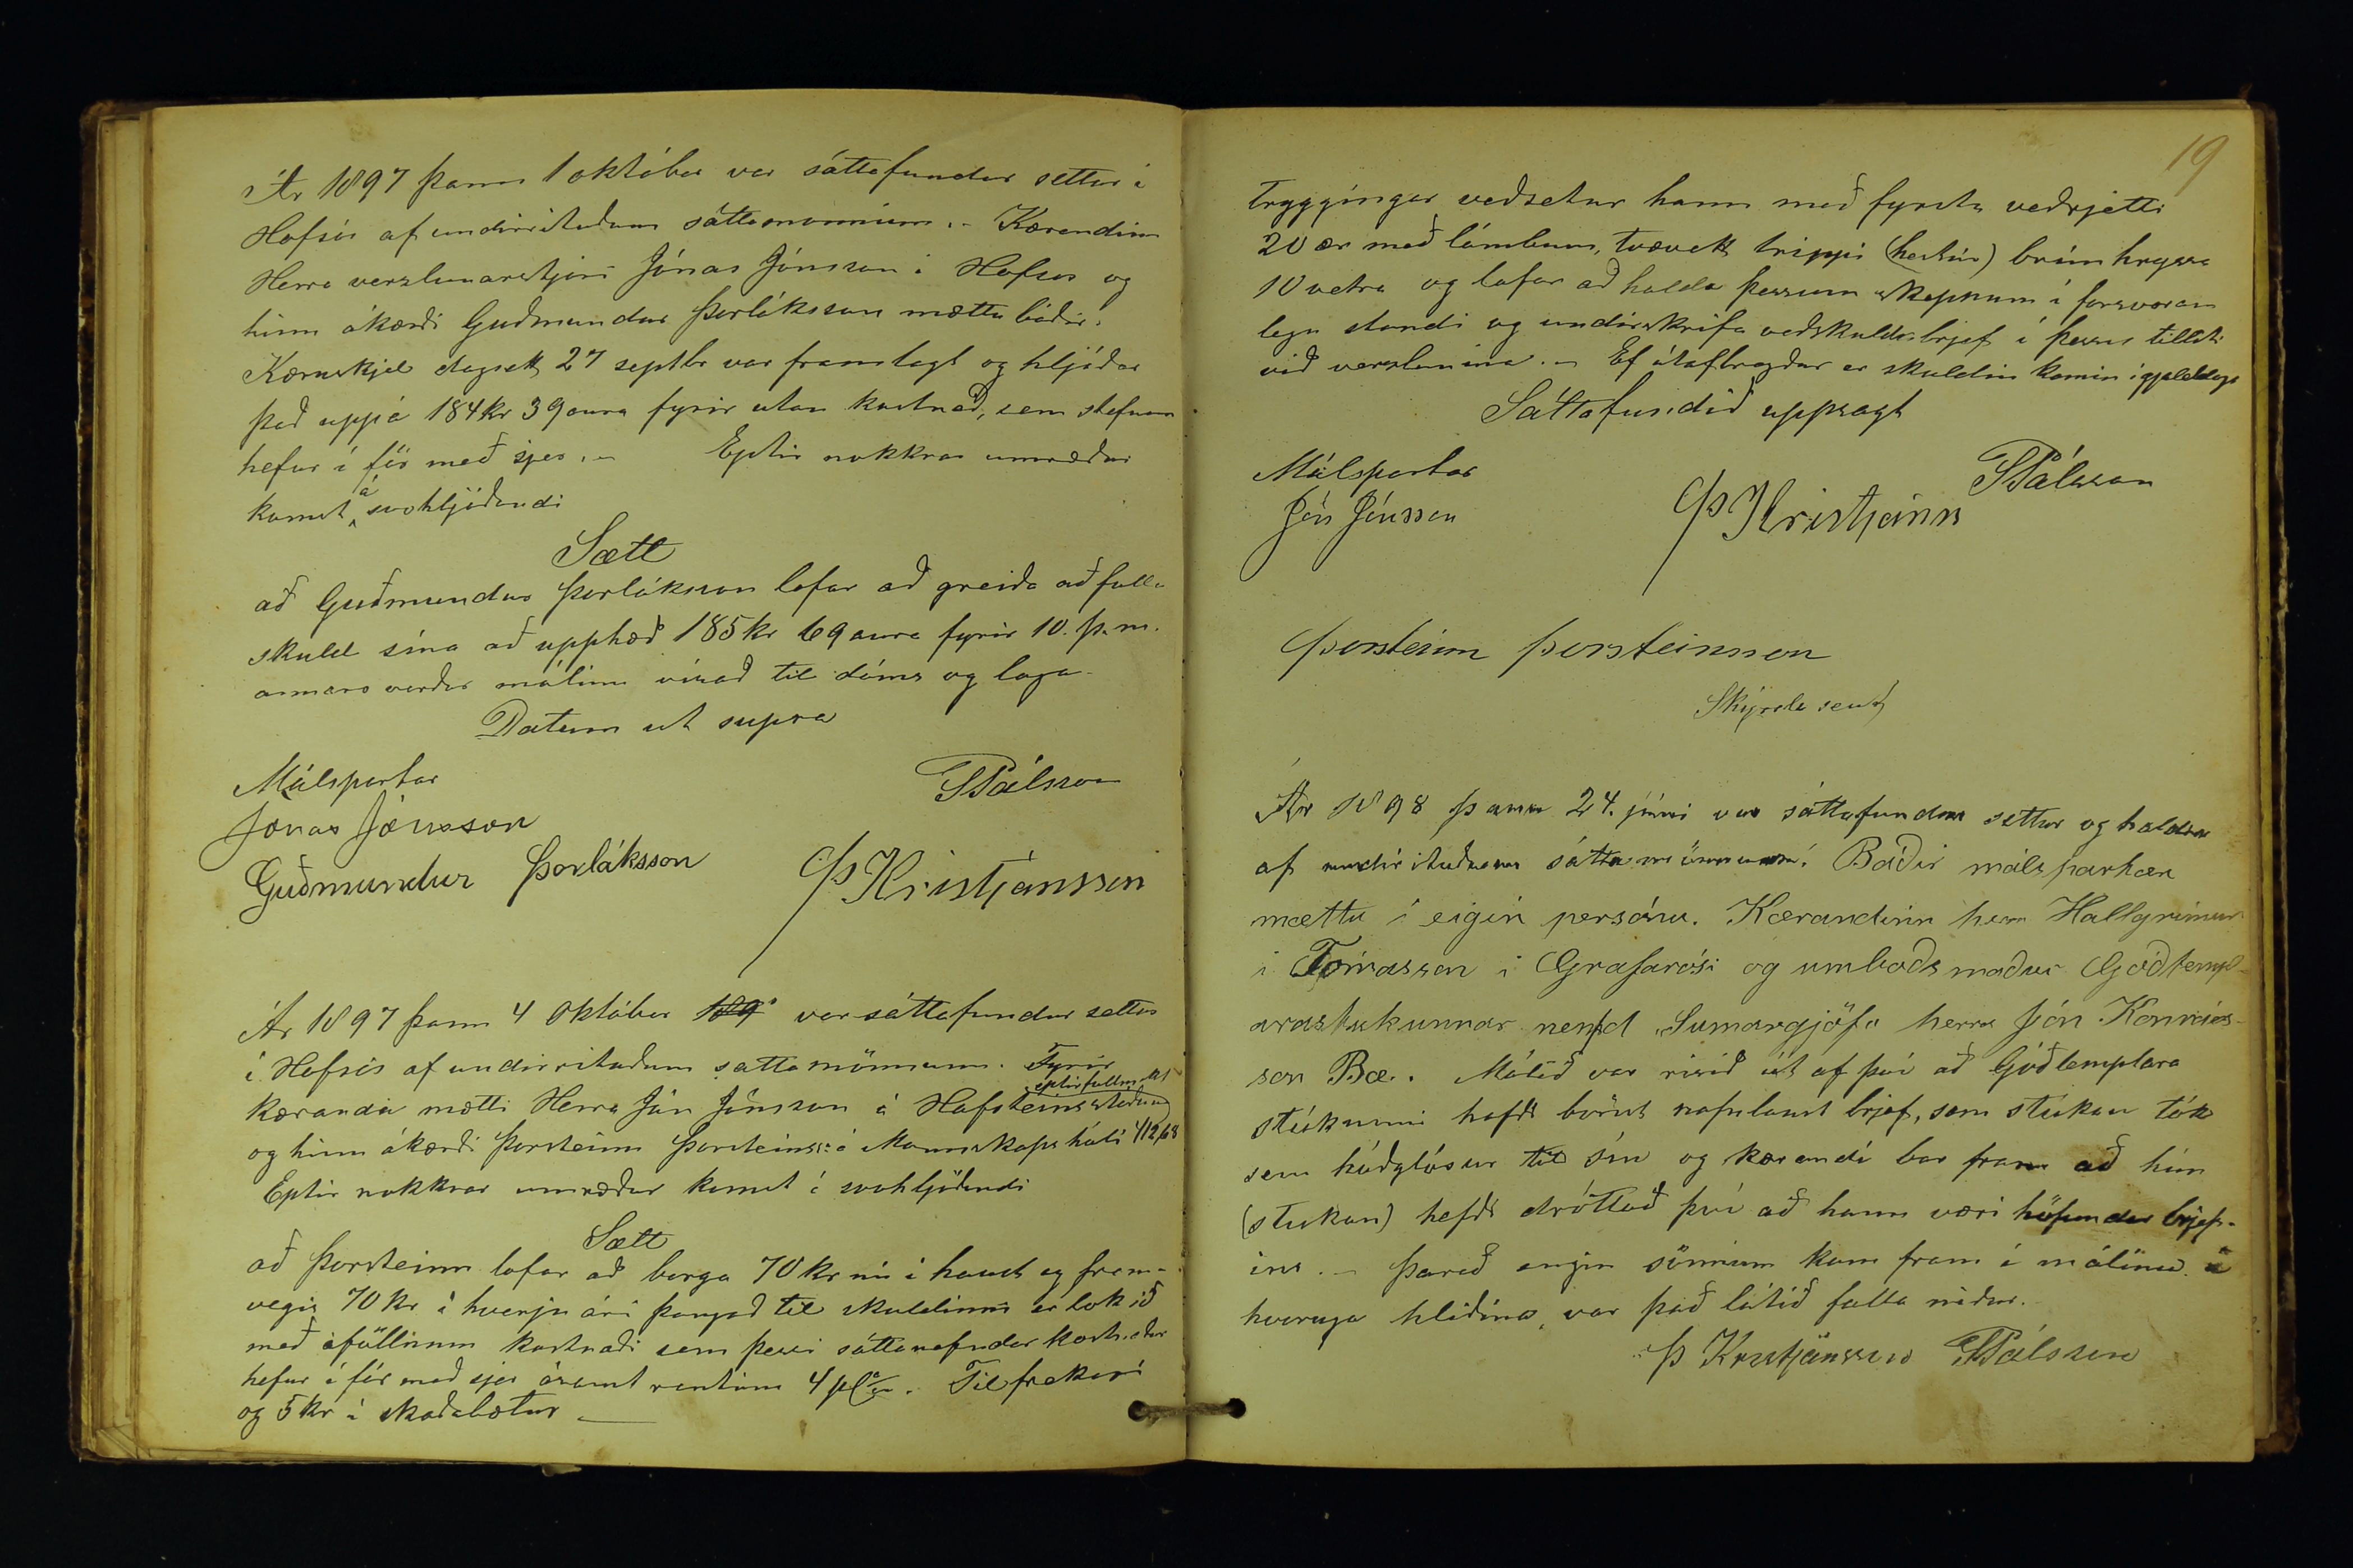 Ár 1897 þann 1 október var sáttafundur settur í
Hofsós af undirrituðum sáttamönnum. - Kærandinn
Herra verzlunarstjóri Jónas Jónsson í Hofsós og
hinn ákærði Guðmundur Þorláksson mættu báðir.
Kæruskjal dagsett 27 septbr var framlagt og hljóðar
það uppá 184 kr 39 aura fyrir utan kostnað, sem stefnan
hefur í för með sjer. - Eptir nokkrar umræður
komst á svohljóðandi
Sætt
að Guðmundur Þorláksson lofar að greiða að fullu
skuld sína að upphæð 185 kr 69 aura fyrir 10. þ.m.
annars verður málinu vísað til dóms og laga.
Datum ut supra
Málspartar
Jónas Jónsson
Guðmundur Þorláksson
SPálsson
Þ Kristjánsson
Ár 1897 þann 4 Október 189 var sáttafundur settur
í Hofsós af undirrituðum sáttamönnum. Fyrir
kæranda mætti Herra Jón Jónsson á Hafsteinsstöðum
eptir fullm. dat
og hinn ákærði Þorsteinn Þorsteinss: á Mannskaps hóli
Eptir nokkrar umræður komst á svohljóðandi
Sætt
að Þorsteinn lofar að borga 70 kr nú í haust og fram-
vegis 70 kr á hverju ári þangað til skuldinni er lokið
með áföllnum kostnaði sem þessi sáttanefndar kostnaður
hefur í för með sjer ásamt rentum 4 pC. Til frekari
og 5 kr í skaðabætur
19
tryggingar veðsetur hann með fyrsta veðrjetti
20 ær með lömbum, tvævett trippi (hestur) brún hryssa
10 vetra og lofar að halda þessum skepnum í forsvaran
legu standi og undirskrifa veðskuldabrjef í þessu tilliti
við verzlunina. - Ef útafbregður er skuldin komin í gjalddaga
Sáttafundið uppsagt
Málspartar
Jón Jónsson
SPálsson
Þ Kristjánss
Þorsteinn Þorsteinsson
Skýrsla send
Ár 1898 þann 24. júní var sáttafundur settur og haldinn
af undirrituðum sáttamönnum. Báðir málsparkar
mættu í eigin persónu. Kærandinn herra Hallgrímur
i Tómasson í Grafarósi og umboðsmaður Góðtempl-
arastukunnar nefnd "Sumargjöf" herra Jón Konráðs-
son Bæ. Málið var risið út af því að Góðtemplara
stúkunni hafði borist nafnlaust brjef, sem stúkan tók
sem háðglósur til sín og kærandi bar fram að hún
(stukan) hefði dróttað því að hann væri höfundur brjefs-
ins. - Þareð engin sönnun kom fram í málinu á
hveruga hliðina, var það látið falla niður.
Þ Kristjánsson SPálsson